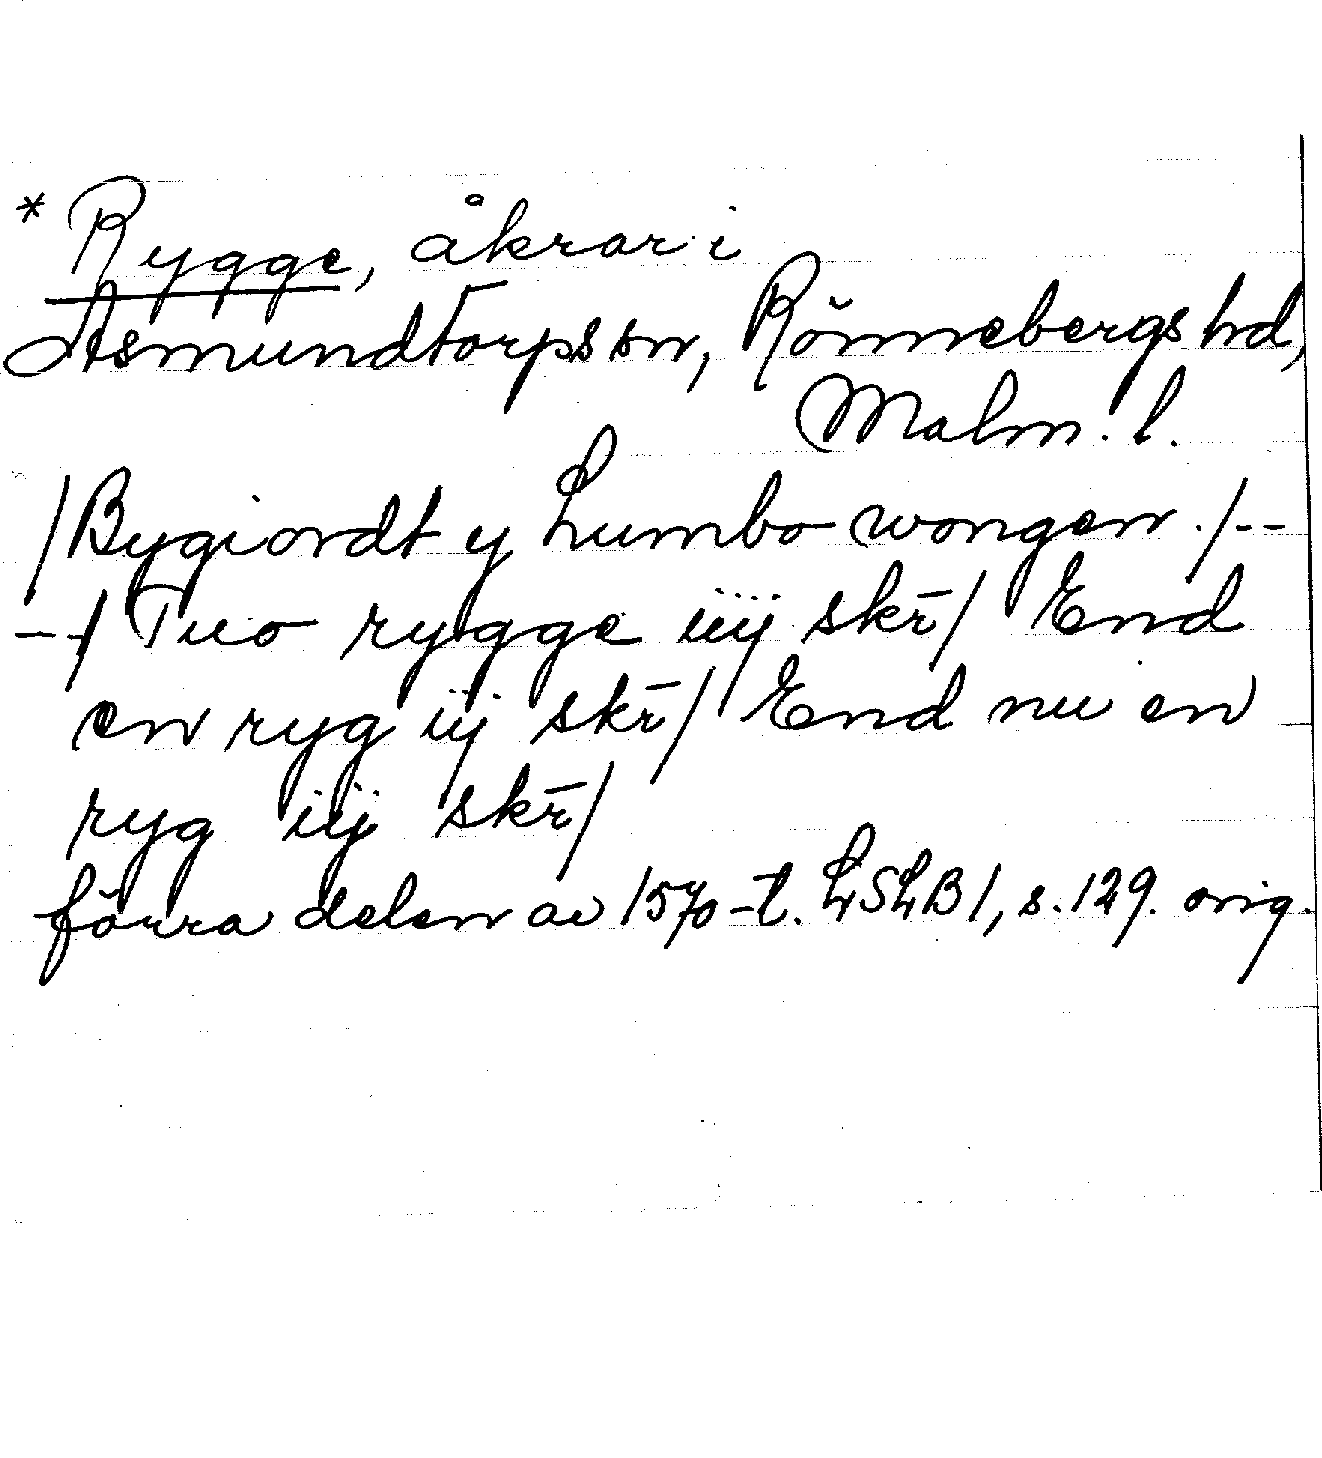 * Rygge, åkrar i
Asmundtorps sn, Rönnebergs hd,
Malm. l.
/Bygiordt y Lumbo wongen ./--
--/ Tuo rygge iiij skr̄/ End
en ryg iij skr̄/ End nu en
ryg iij skr̄/
förra delen av 1570-t. LSLB1, s. 129. orig.